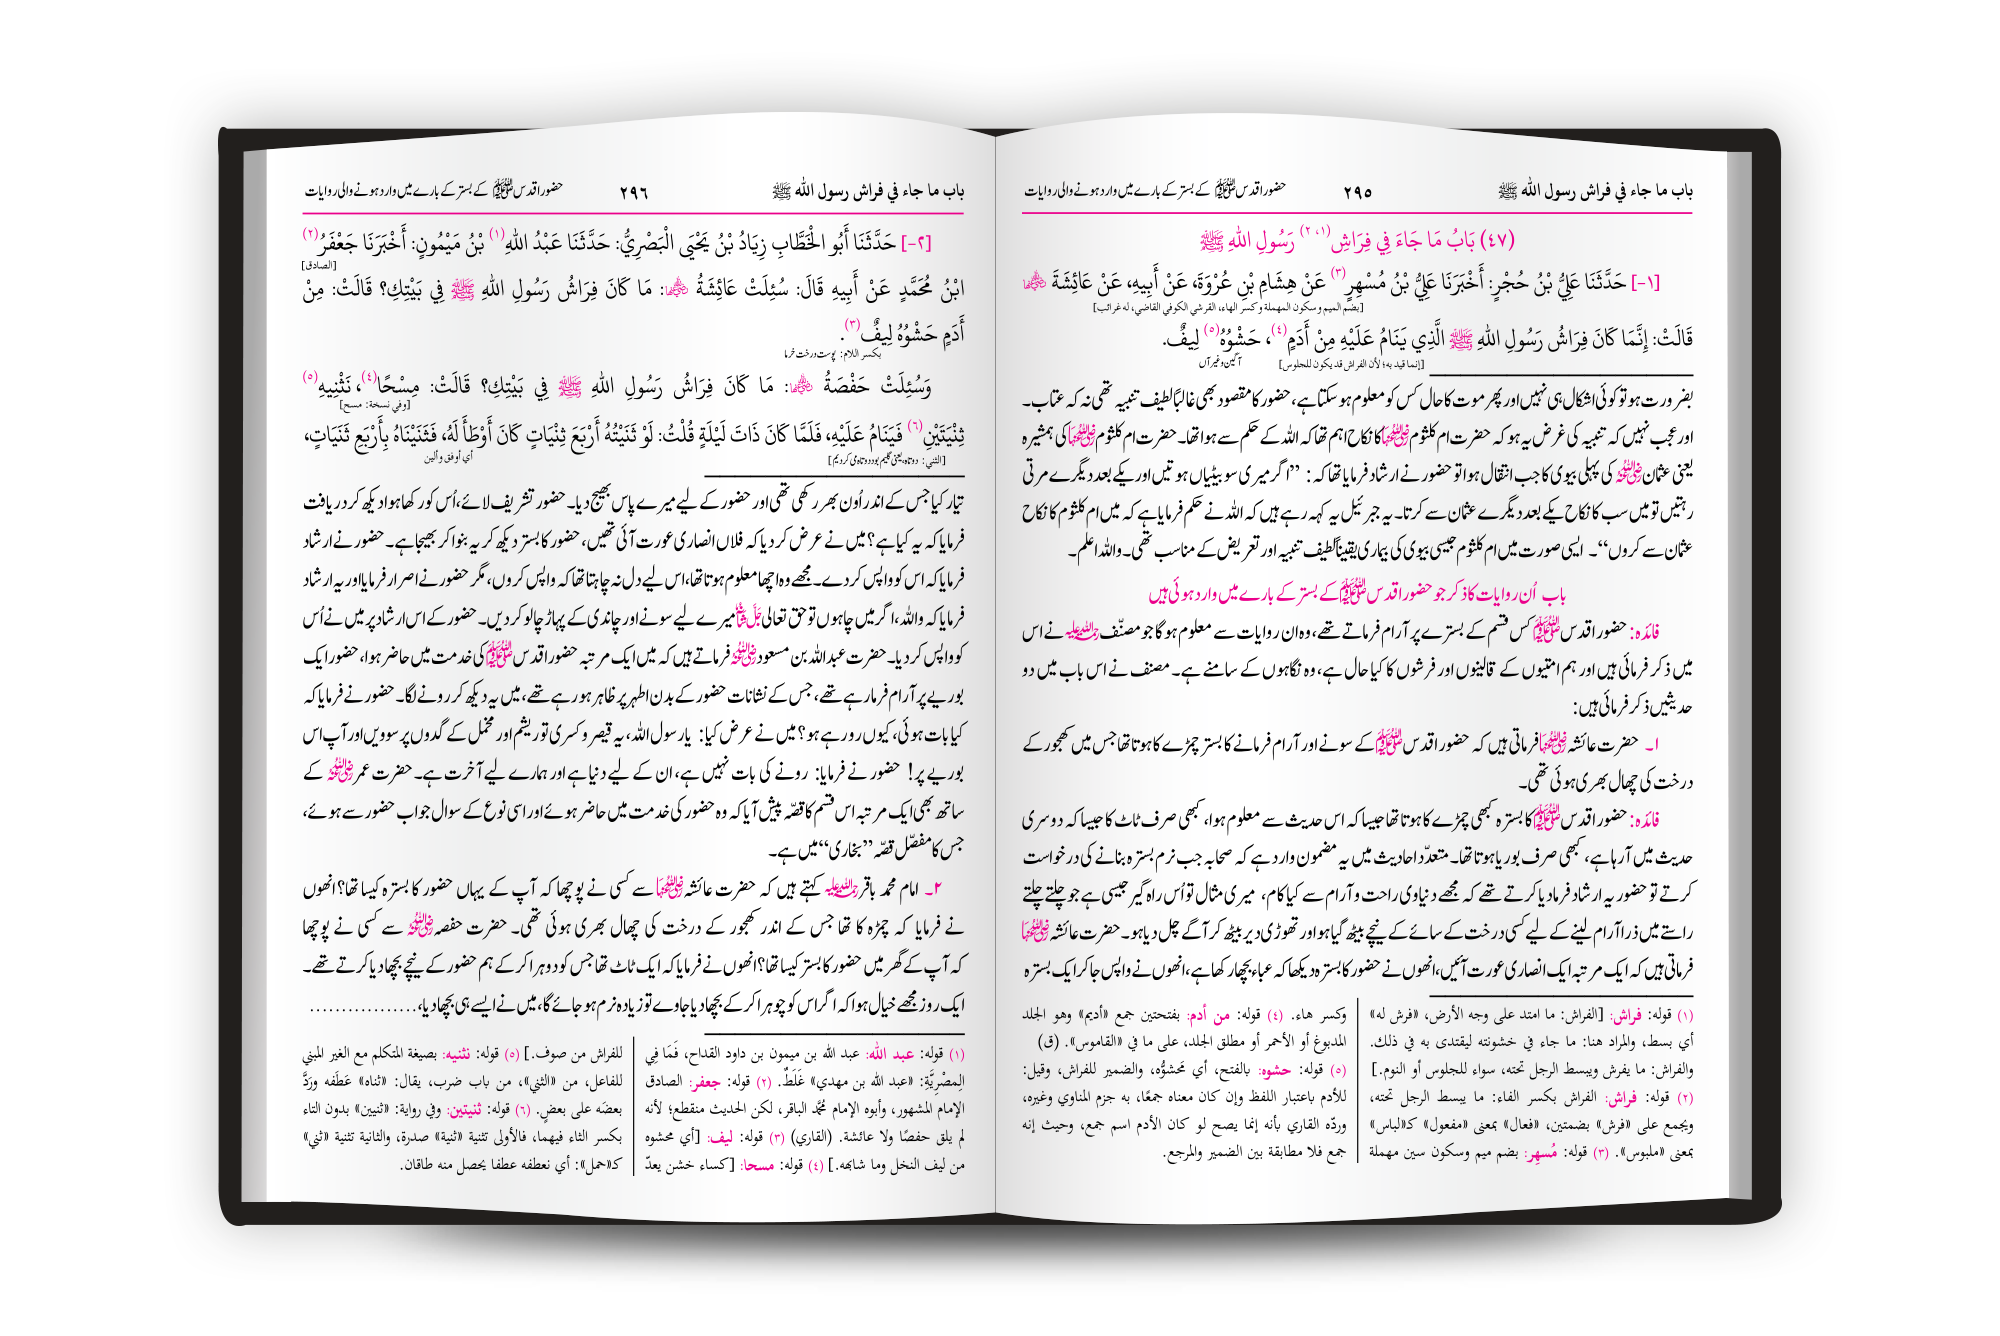 باب ما جاء في فراش رسول الله ﷺ ٢٩٥ حضور اقدس ﷺ کے بستر کے بارے میں وارد ہونے والی روایات
(٤٧) بَابُ مَا جَاءَ فِي فِرَاشِ(١، ٢) رَسُولِ اللهِ ﷺ
[١-] حَدَّثَنَا عَلِيُّ بْنُ حُجْرٍ: أَخْبَرَنَا عَلِيُّ بْنُ مُسْهِرٍ(٣) عَنْ هِشَامِ بْنِ عُرْوَةَ، عَنْ أَبِيهِ، عَنْ عَائِشَةَ رضی اللہ عنہا
[بضم الميم وسكون المهملة وكسر الهاء، القرشي الكوفي القاضي، له غرائب]
قَالَتْ: إِنَّمَا كَانَ فِرَاشُ رَسُولِ اللهِ ﷺ الَّذِي يَنَامُ عَلَيْهِ مِنْ أَدَمٍ(٤)، حَشْوُهُ(٥) لِيفٌ.
[إنما قيد به؛ لأن الفراش قد يكون للجلوس]
بضرورت ہو تو کوئی اشکال ہی نہیں اور پھر موت کا حال کس کو معلوم ہو سکتا ہے، حضور کا مقصود بھی غالبًا لطیف تنبیہ تھی نہ کہ عتاب۔
اور عجب نہیں کہ تنبیہ کی غرض یہ ہو کہ حضرت ام کلثوم رضی اللہ عنہا کا نکاح اہم تھا کہ اللہ کے حکم سے ہوا تھا۔ حضرت ام کلثوم رضی اللہ عنہا کی ہمشیرہ
یعنی عثمان رضی اللہ عنہ کی پہلی بیوی کا جب انتقال ہوا تو حضور نے ارشاد فرمایا تھا کہ: ”اگر میری سو بیٹیاں ہوتیں اور یکے بعد دیگرے مرتی
رہتیں تو میں سب کا نکاح یکے بعد دیگرے عثمان سے کرتا۔ یہ جبرئیل یہ کہہ رہے ہیں کہ اللہ نے حکم فرمایا ہے کہ میں ام کلثوم کا نکاح
عثمان سے کروں“۔ ایسی صورت میں ام کلثوم جیسی بیوی کی بیماری یقینًا لطیف تنبیہ اور تعریض کے مناسب تھی۔ واللہ اعلم۔
باب اُن روایات کا ذکر جو حضور اقدس ﷺ کے بستر کے بارے میں وارد ہوئی ہیں
فائدہ: حضور اقدس ﷺ کس قسم کے بسترے پر آرام فرماتے تھے، وہ ان روایات سے معلوم ہوگا جو مصنّف رحمۃ اللہ علیہ نے اس
میں ذکر فرمائی ہیں اور ہم امتیوں کے قالینوں اور فرشوں کا کیا حال ہے، وہ نگاہوں کے سامنے ہے۔ مصنف نے اس باب میں دو
حدیثیں ذکر فرمائی ہیں:
۱۔ حضرت عائشہ رضی اللہ عنہا فرماتی ہیں کہ حضور اقدس ﷺ کے سونے اور آرام فرمانے کا بستر چمڑے کا ہوتا تھا جس میں کھجور کے
درخت کی چھال بھری ہوئی تھی۔
فائدہ: حضور اقدس ﷺ کا بسترہ کبھی چمڑے کا ہوتا تھا جیسا کہ اس حدیث سے معلوم ہوا، کبھی صرف ٹاٹ کا جیسا کہ دوسری
حدیث میں آ رہا ہے، کبھی صرف بوریا ہوتا تھا۔ متعدّد احادیث میں یہ مضمون وارد ہے کہ صحابہ جب نرم بسترہ بنانے کی درخواست
کرتے تو حضور یہ ارشاد فرما دیا کرتے تھے کہ مجھے دنیاوی راحت و آرام سے کیا کام، میری مثال تو اُس راہ گیر جیسی ہے جو چلتے چلتے
راستے میں ذرا آرام لینے کے لیے کسی درخت کے سائے کے نیچے بیٹھ گیا ہو اور تھوڑی دیر بیٹھ کر آگے چل دیا ہو۔ حضرت عائشہ رضی اللہ عنہا
فرماتی ہیں کہ ایک مرتبہ ایک انصاری عورت آئیں، انھوں نے حضور کا بسترہ دیکھا کہ عباء بچھا رکھا ہے، انھوں نے واپس جا کر ایک بسترہ
(١) قوله: فراش: [الفراش: ما امتد على وجه الأرض، «فرش له»
أي بسط، والمراد هنا: ما جاء في خشونته ليقتدى به في ذلك.
والفراش: ما يفرش ويبسط الرجل تحته، سواء للجلوس أو النوم.]
(٢) قوله: فراش: الفراش بكسر الفاء: ما يبسط الرجل تحته،
ويجمع على «فرش» بضمتين، «فعال» بمعنى «مفعول» كـ«لباس»
بمعنى «ملبوس». (٣) قوله: مُسْهِر: بضم ميم وسكون سين مهملة
وكسر هاء. (٤) قوله: من أدم: بفتحتين جمع «أديم» وهو الجلد
المدبوغ أو الأحمر أو مطلق الجلد، على ما في «القاموس». (ق)
(٥) قوله: حشوه: بالفتح، أي مَحشوُّه، والضمير للفراش، وقيل:
للأدم باعتبار اللفظ وإن كان معناه جمعًا، به جزم المناوي وغيره،
وردّه القاري بأنه إنما يصح لو كان الأدم اسم جمع، وحيث إنه
جمع فلا مطابقة بين الضمير والمرجع.
باب ما جاء في فراش رسول الله ﷺ ٢٩٦ حضور اقدس ﷺ کے بستر کے بارے میں وارد ہونے والی روایات
[٢-] حَدَّثَنَا أَبُو الْخَطَّابِ زِيَادُ بْنُ يَحْيَى الْبَصْرِيُّ: حَدَّثَنَا عَبْدُ اللهِ(١) بْنُ مَيْمُونٍ: أَخْبَرَنَا جَعْفَرُ(٢)
[الصادق]
ابْنُ مُحَمَّدٍ عَنْ أَبِيهِ قَالَ: سُئِلَتْ عَائِشَةُ رضی اللہ عنہا: مَا كَانَ فِرَاشُ رَسُولِ اللهِ ﷺ فِي بَيْتِكِ؟ قَالَتْ: مِنْ
أَدَمٍ حَشْوُهُ لِيفٌ(٣).
بكسر اللام: پوست درخت خرما
وَسُئِلَتْ حَفْصَةُ رضی اللہ عنہا: مَا كَانَ فِرَاشُ رَسُولِ اللهِ ﷺ فِي بَيْتِكِ؟ قَالَتْ: مِسْحًا(٤)، نَثْنِيهِ(٥)
[وفي نسخة: مسح]
ثِنْيَتَيْنِ(٦) فَيَنَامُ عَلَيْهِ، فَلَمَّا كَانَ ذَاتَ لَيْلَةٍ قُلْتُ: لَوْ ثَنَيْتُهُ أَرْبَعَ ثِنْيَاتٍ كَانَ أَوْطَأَ لَهُ، فَثَنَيْنَاهُ بِأَرْبَعِ ثَنَيَاتٍ،
أي أوفق وألين
تیار کیا جس کے اندر اُون بھر رکھی تھی اور حضور کے لیے میرے پاس بھیج دیا۔ حضور تشریف لائے، اُس کو رکھا ہوا دیکھ کر دریافت
فرمایا کہ یہ کیا ہے؟ میں نے عرض کر دیا کہ فلاں انصاری عورت آئی تھیں، حضور کا بستر دیکھ کر یہ بنوا کر بھیجا ہے۔ حضور نے ارشاد
فرمایا کہ اس کو واپس کر دے۔ مجھے وہ اچھا معلوم ہوتا تھا، اس لیے دل نہ چاہتا تھا کہ واپس کروں، مگر حضور نے اصرار فرمایا اور یہ ارشاد
فرمایا کہ واللہ، اگر میں چاہوں تو حق تعالی جَلَّ شَانُہٗ میرے لیے سونے اور چاندی کے پہاڑ چالو کر دیں۔ حضور کے اس ارشاد پر میں نے اُس
کو واپس کر دیا۔ حضرت عبد اللہ بن مسعود رضی اللہ عنہ فرماتے ہیں کہ میں ایک مرتبہ حضور اقدس ﷺ کی خدمت میں حاضر ہوا، حضور ایک
بوریے پر آرام فرما رہے تھے، جس کے نشانات حضور کے بدن اطہر پر ظاہر ہو رہے تھے، میں یہ دیکھ کر رونے لگا۔ حضور نے فرمایا کہ
کیا بات ہوئی، کیوں رو رہے ہو؟ میں نے عرض کیا: یا رسول اللہ، یہ قیصر و کسری تو ریشم اور مخمل کے گدوں پر سوویں اور آپ اس
بوریے پر! حضور نے فرمایا: رونے کی بات نہیں ہے، ان کے لیے دنیا ہے اور ہمارے لیے آخرت ہے۔ حضرت عمر رضی اللہ عنہ کے
ساتھ بھی ایک مرتبہ اس قسم کا قصّہ پیش آیا کہ وہ حضور کی خدمت میں حاضر ہوئے اور اسی نوع کے سوال جواب حضور سے ہوئے،
جس کا مفصّل قصّہ ”بخاری“ میں ہے۔
۲۔ امام محمد باقر رحمۃ اللہ علیہ کہتے ہیں کہ حضرت عائشہ رضی اللہ عنہا سے کسی نے پوچھا کہ آپ کے یہاں حضور کا بسترہ کیسا تھا؟ انھوں
نے فرمایا کہ چمڑہ کا تھا جس کے اندر کھجور کے درخت کی چھال بھری ہوئی تھی۔ حضرت حفصہ رضی اللہ عنہا سے کسی نے پوچھا
کہ آپ کے گھر میں حضور کا بستر کیسا تھا؟ انھوں نے فرمایا کہ ایک ٹاٹ تھا جس کو دوہرا کر کے ہم حضور کے نیچے بچھا دیا کرتے تھے۔
ایک روز مجھے خیال ہوا کہ اگر اس کو چوہرا کر کے بچھا دیا جاوے تو زیادہ نرم ہو جائے گا، میں نے ایسے ہی بچھا دیا، .................
(١) قوله: عبد الله: عبد الله بن ميمون بن داود القداح، فَمَا فِي
المِصْرِيَّةِ: «عبد الله بن مهدي» غَلَطٌ. (٢) قوله: جعفر: الصادق
الإمام المشهور، وأبوه الإمام مُحَمَّد الباقر، لكن الحديث منقطع؛ لأنه
لم يلق حفصًا ولا عائشة. (القاري) (٣) قوله: ليف: [أي محشوه
من ليف النخل وما شابهه.] (٤) قوله: مسحا: [كساء خشن يعدّ
للفراش من صوف.] (٥) قوله: نثنيه: بصيغة المتكلم مع الغير المبني
للفاعل، من «الثني»، من باب ضرب، يقال: «ثناه» عَطَفه ورَدَّ
بعضَه على بعضٍ. (٦) قوله: ثنيتين: وفي رواية: «ثنيين» بدون التاء
بكسر الثاء فيهما، فالأولى تثنية «ثنية» صدرة، والثانية تثنية «ثني»
كـ«حمل»: أي نعطفه عطفا يحصل منه طاقان.